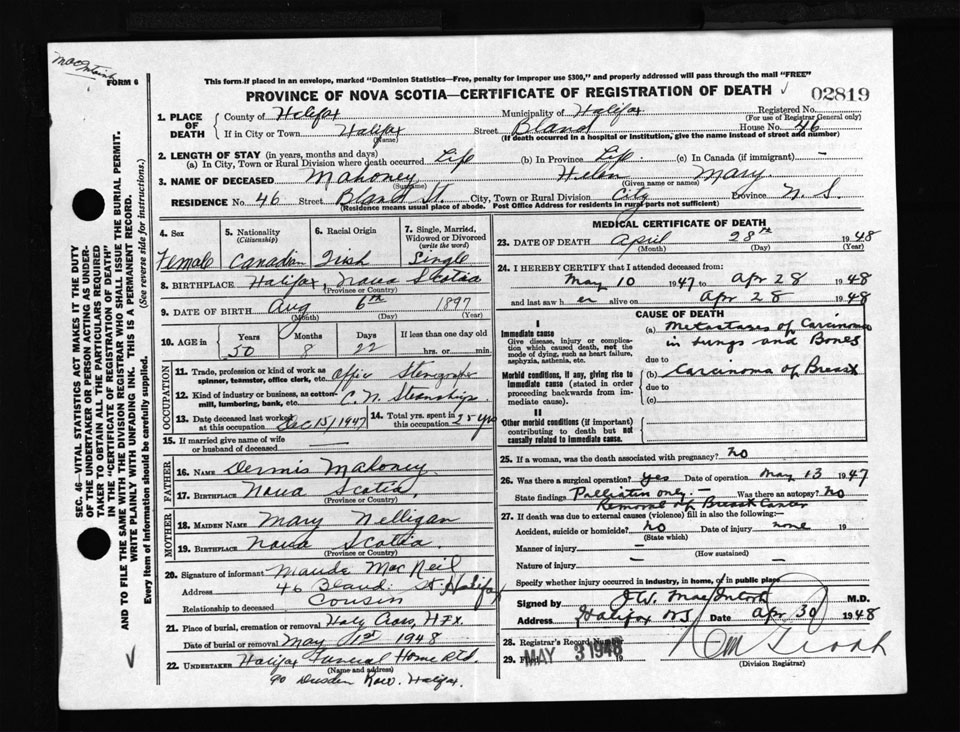 MacIntosh
FORM 6
This form if placed in an envelope, marked "Dominion Statistics—Free, penalty for improper use $300," and properly addressed will pass through the mail "FREE"
PROVINCE OF NOVA SCOTIA—CERTIFICATE OF REGISTRATION OF DEATH
02819
SEC. 46—VITAL STATISTICS ACT MAKES IT THE DUTY
OF THE UNDERTAKER OR PERSON ACTING AS UNDER-
TAKER TO OBTAIN ALL THE PARTICULARS REQUIRED
IN THE "CERTIFICATE OF REGISTRATION OF DEATH"
AND TO FILE THE SAME WITH THE DIVISION REGISTRAR WHO SHALL ISSUE THE BURIAL PERMIT.
WRITE PLAINLY WITH UNFADING INK. THIS IS A PERMANENT RECORD.
Every item of Information should be carefully supplied. (See reverse side for instructions.)
1. PLACE OF DEATH County of Halifax Municipality of Halifax Registered No.
(For use of Registrar General only)
If in City or Town Halifax Street Bland House No. 46
(Name) (If death occurred in a hospital or institution, give the name instead of street and number)
2. LENGTH OF STAY (in years, months and days)
(a) In City, Town or Rural Division where death occurred Life (b) In Province Life (c) In Canada (if immigrant) —
3. NAME OF DECEASED Mahoney Helen Mary
(Surname) (Given name or names)
RESIDENCE No. 46 Street Bland St. City, Town or Rural Division City Province N. S.
(Residence means usual place of abode. Post Office Address for residents in rural parts not sufficient)
4. Sex 5. Nationality (Citizenship) 6. Racial Origin 7. Single, Married, Widowed or Divorced (write the word)
Female Canadian Irish Single
8. BIRTHPLACE Halifax, Nova Scotia
(Province or Country)
9. DATE OF BIRTH Aug 6th 1897
(Month) (Day) (Year)
10. AGE in Years Months Days If less than one day old
50 8 22 hrs. or min.
OCCUPATION
11. Trade, profession or kind of work as spinner, teamster, office clerk, etc. Office Stenographer
12. Kind of industry or business, as cotton-mill, lumbering, bank, etc. C. N. Steamships
13. Date deceased last worked at this occupation Dec 15/1947 14. Total yrs. spent in this occupation 25 yrs
15. If married give name of wife or husband of deceased —
FATHER
16. NAME Dennis Mahoney
17. BIRTHPLACE Nova Scotia
(Province or Country)
MOTHER
18. MAIDEN NAME Mary Nelligan
19. BIRTHPLACE Nova Scotia
(Province or Country)
20. Signature of informant Maude MacNeil
Address 46 Bland St Halifax
Relationship to deceased Cousin
21. Place of burial, cremation or removal Holy Cross, Hfx.
Date of burial or removal May 1st 1948
22. UNDERTAKER Halifax Funeral Home Ltd.
(Name and address)
90 Dresden Row. Halifax.
MEDICAL CERTIFICATE OF DEATH
23. DATE OF DEATH April 28th 1948
(Month) (Day) (Year)
24. I HEREBY CERTIFY that I attended deceased from:
May 10 1947 to Apr 28 1948
and last saw h er alive on Apr 28 1948
CAUSE OF DEATH
I
Immediate cause
Give disease, injury or complication which caused death, not the mode of dying, such as heart failure, asphyxia, asthenia, etc.
(a) Metastases of Carcinoma
in Lungs and Bones
due to
Morbid conditions, if any, giving rise to immediate cause (stated in order proceeding backwards from immediate cause).
(b) Carcinoma of Breast
due to
(c)
II
Other morbid conditions (if important) contributing to death but not causally related to immediate cause.
25. If a woman, was the death associated with pregnancy? no
26. Was there surgical operation? yes Date of operation May 13 1947
State findings Palliation only. — Was there an autopsy? No
Removal of Breast Cancer
27. If death was due to external causes (violence) fill in also the following:—
Accident, suicide or homicide? no Date of injury none 19
(State which)
Manner of injury — —
(How sustained)
Nature of injury — —
Specify whether injury occurred in industry, in home, or in public place
Signed by MacIntosh M.D.
Address Halifax NS Date Apr 30 1948
28. Registrar's Record Number
29. Filed MAY 3 1948 19
(Division Registrar)